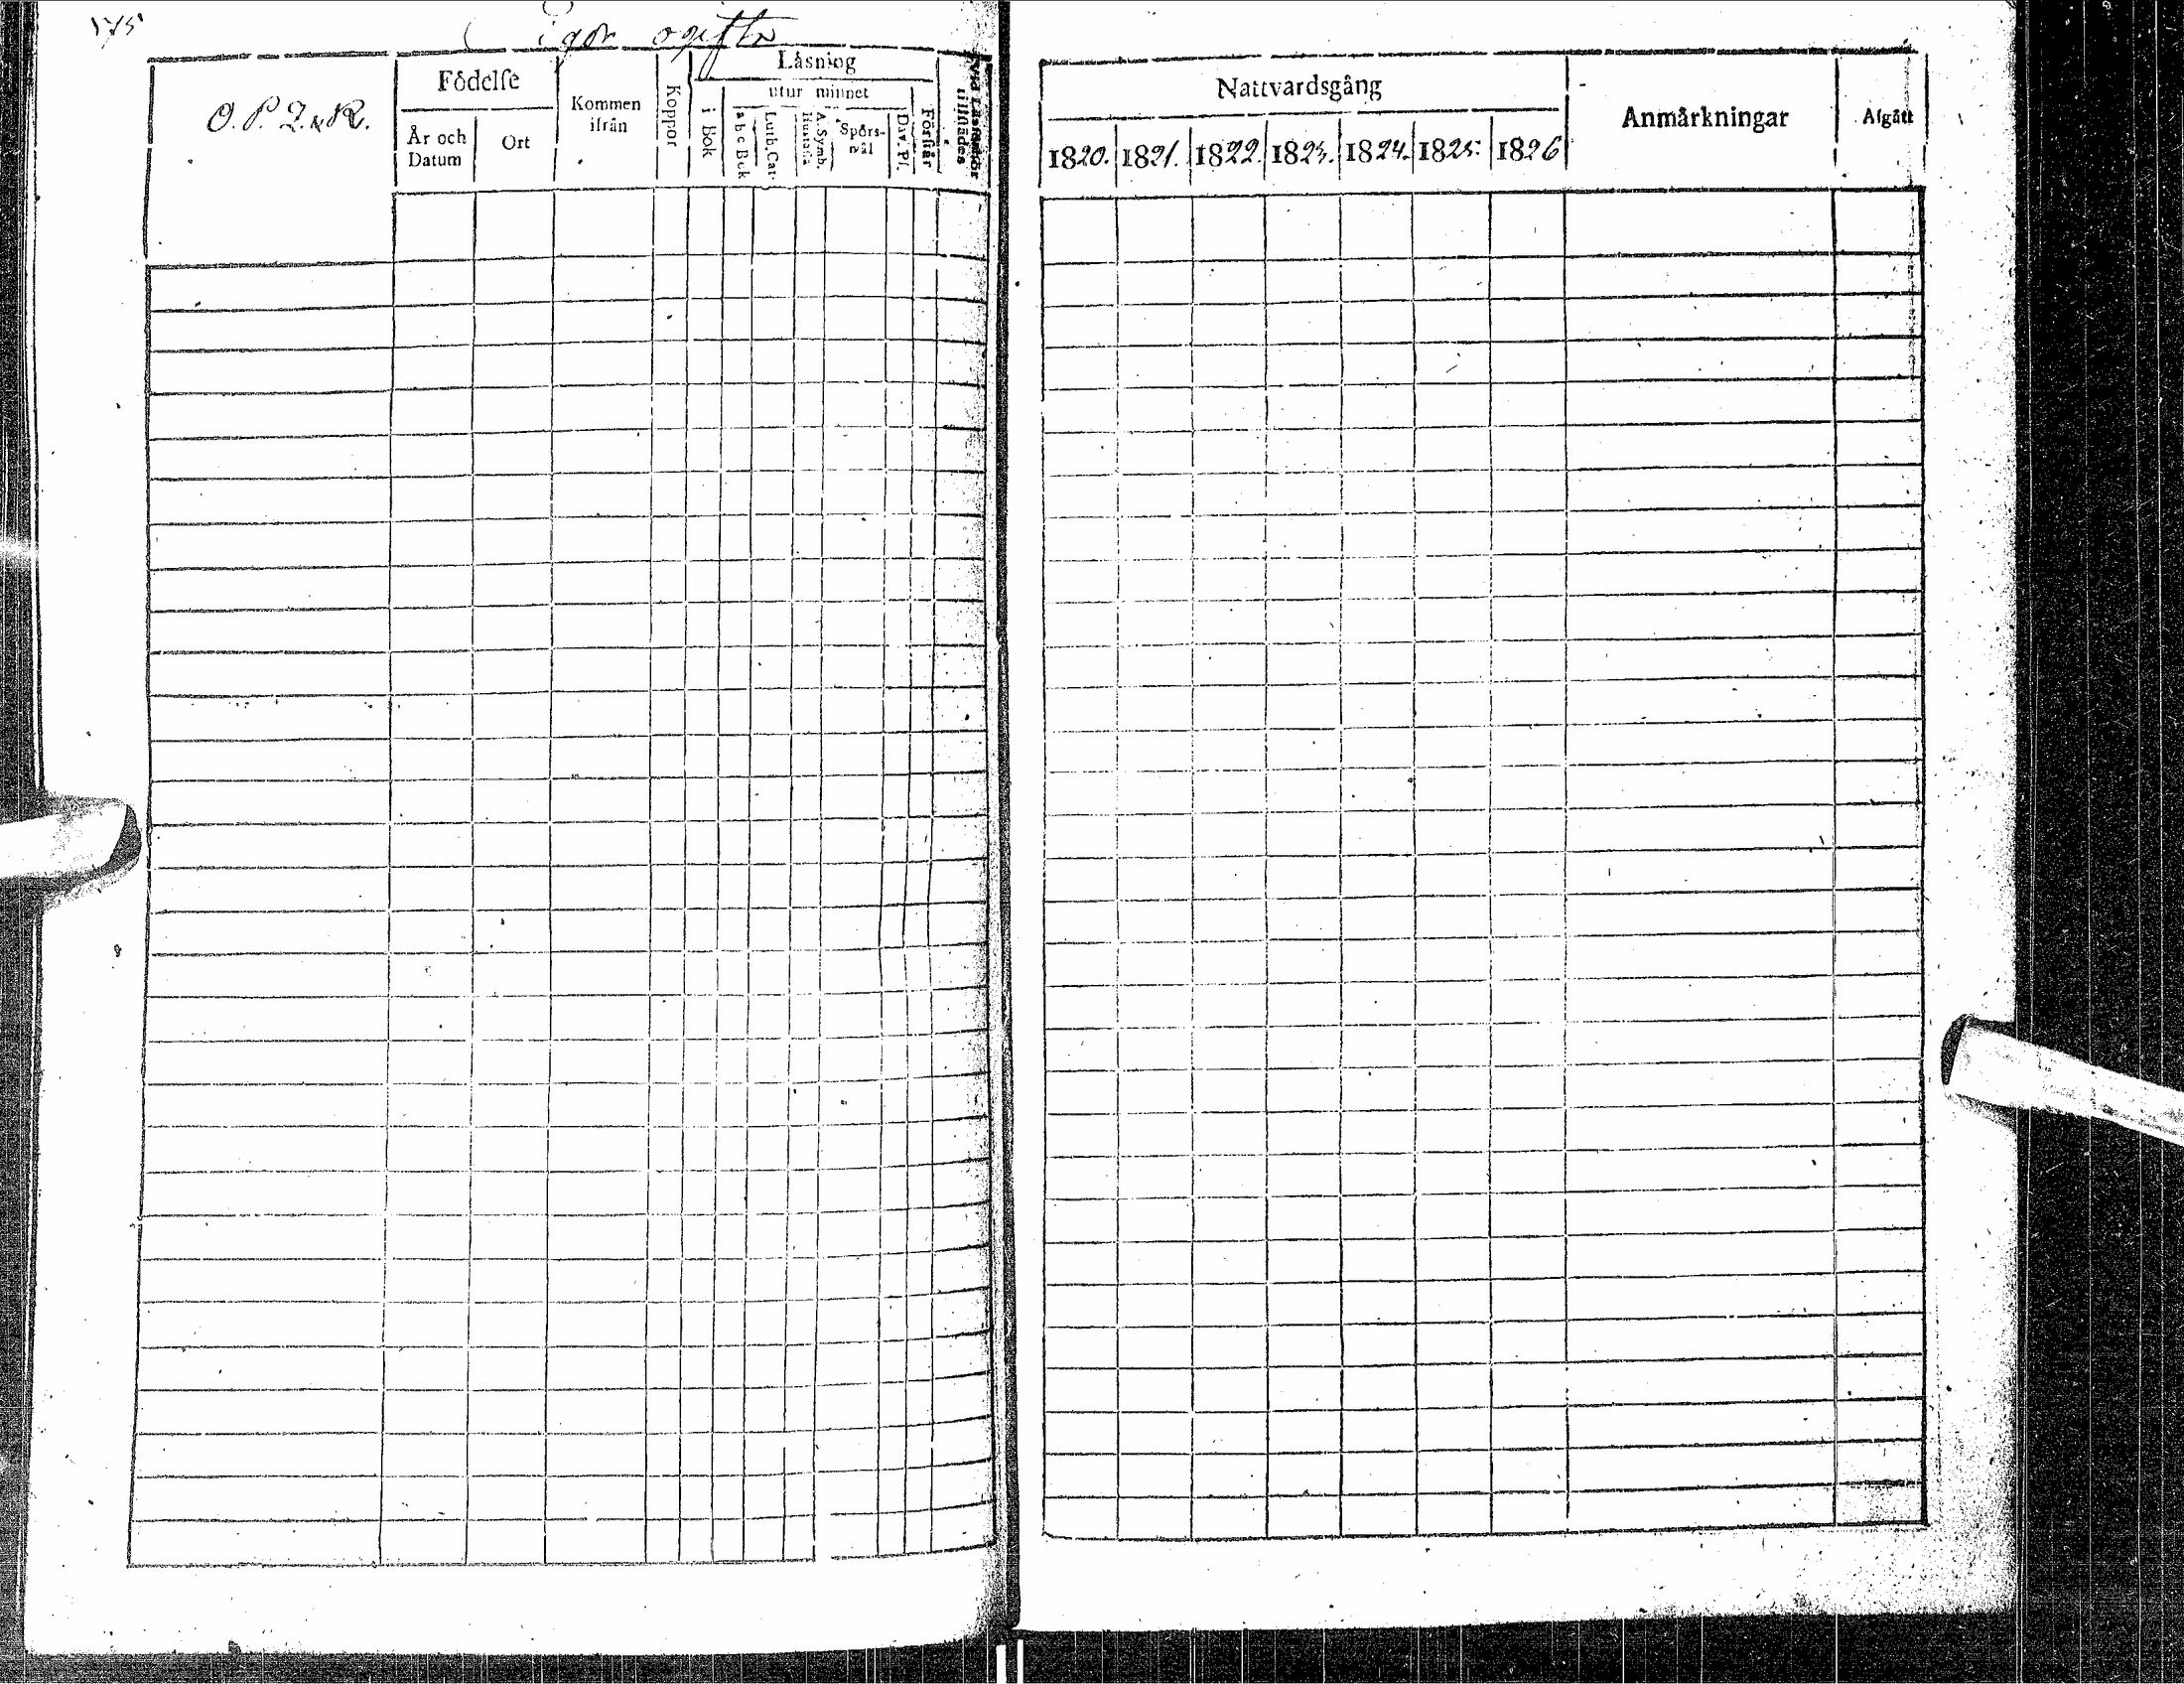 175
Pigor ogifta
O. P. Q. & R.
Födelse
År och Datum
Ort
Kommen ifrån
Koppor
Läsning
i Bok
utur minnet
a b c Bok
Luth. Cat.
A. Symb. Hustafla
Spörsmål
Dav. Ps.
Förstår
Vid Läsförhör tillstädes
Nattvardsgång
1820. 1821. 1822. 1823. 1824. 1825. 1826
Anmärkningar
Afgått